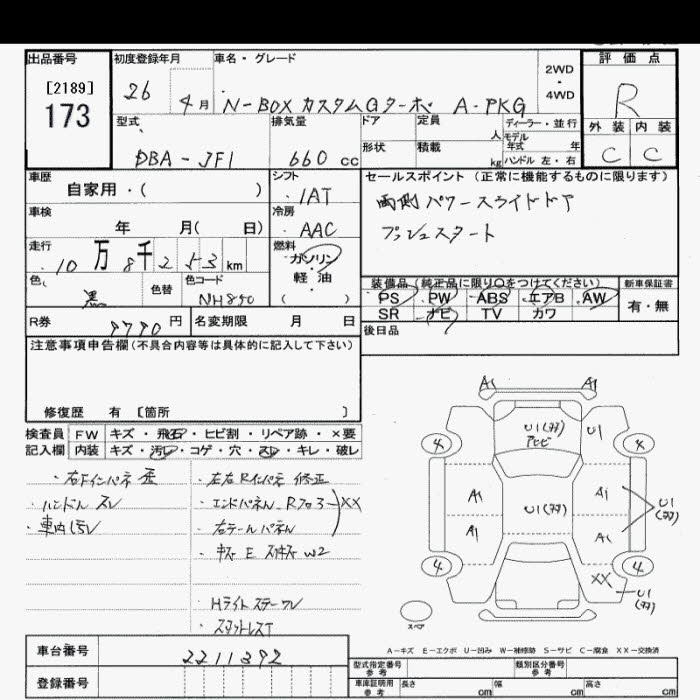 出品番号 初度登録年月 車名・グレード 評価点
[2189]
173
26 4月 N-BOXカスタムGターボ A-PKG 2WD・4WD R
型式 排気量 ドア 定員 人 ディーラー・並行 外装 内装
DBA-JF1 660cc 形状 積載 kg モデル年式 年 ハンドル 左・右 C C
車歴 シフト セールスポイント(正常に機能するものに限ります)
自家用・( ) IAT 両側パワースライドドア
車検 冷房 プッシュスタート
年 月( 日) AAC
走行 燃料
10万8千253km ガソリン・軽油 ( )
色 色替 色コード 装備品(純正品に限り○をつけてください) 新車保証書
黒 NH850 PS PW ABS エアB AW 有・無
SR ナビ TV カワ
R券 9770円 名変期限 月 日 後日品
注意事項申告欄(不具合内容等は具体的に記入して下さい)
修復歴 有 [箇所 ]
検査員 FW キズ・飛石・ヒビ割・リペア跡・×要
記入欄 内装 キズ・汚レ・コゲ・穴・スレ・キレ・破レ
・右Fインパネ歪
・ハンドルスレ
・車内汚レ
・左右Rインパネ修正
・エンドパネル、Rフロアー XX
・右テールパネル
・キズE スキスキW2
・Hライトステーワレ
・スタットレスT
A1 A1
U1(アア)
アヒビ
U1
4 4
A1 A1
U1(アア)
U1
(アア)
A1 A1
4 XX 4
U1
(アア)
スペア
A-キズ E-エクボ U-凹み W-補修跡 S-サビ C-腐食 XX-交換済
車台番号 2211392
登録番号
型式指定番号 参考 類別区分番号 参考
車庫証明用 参考 長さ cm 幅 cm 高さ cm